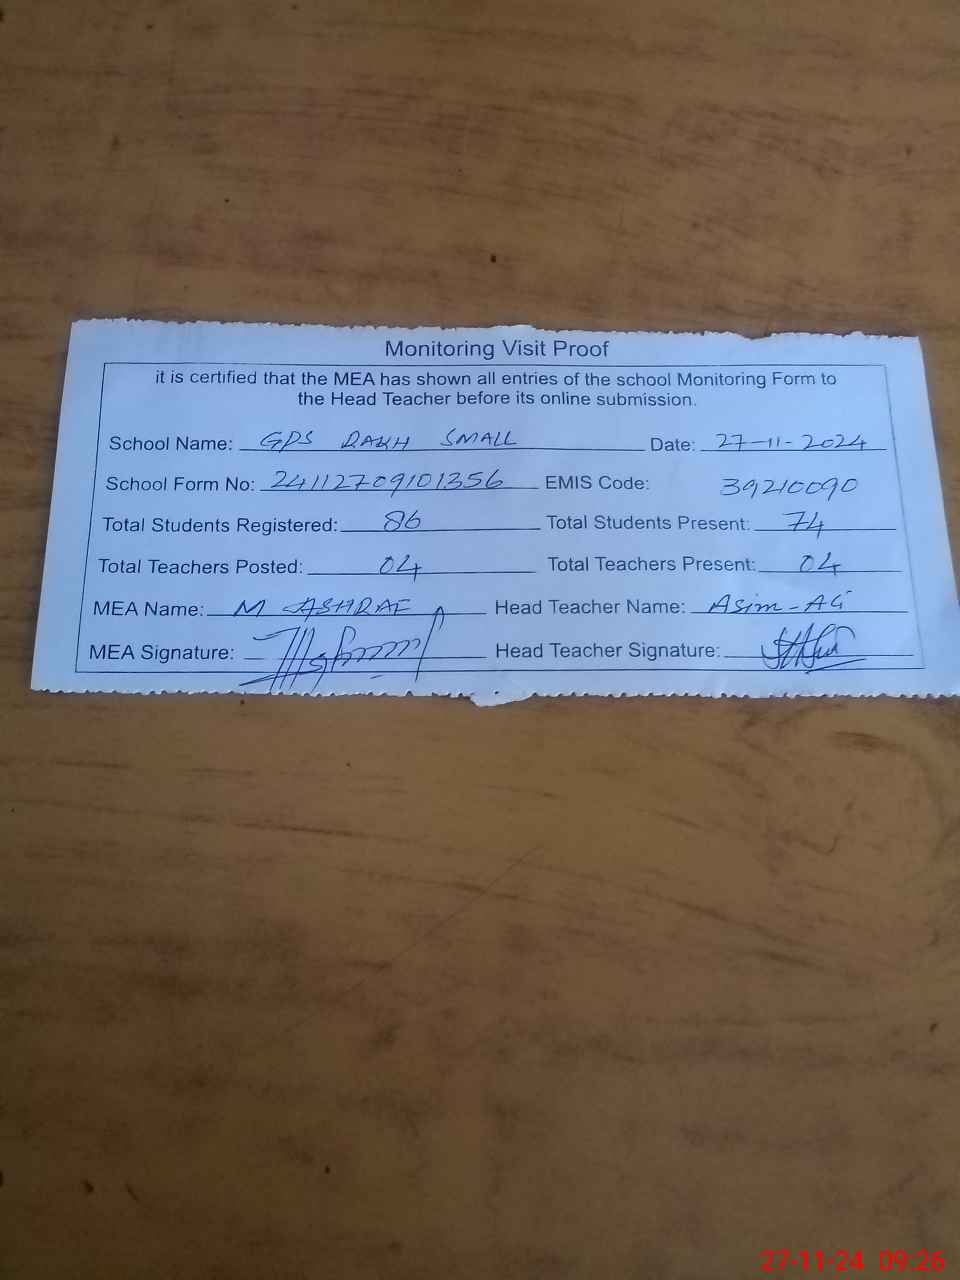 Monitoring Visit Proof
it is certified that the MEA has shown all entries of the school Monitoring Form to
the Head Teacher before its online submission.
School Name: GPS RAKH SMALL Date: 27-11-2024
School Form No: 24112709101356 EMIS Code: 39210090
Total Students Registered: 86 Total Students Present: 74
Total Teachers Posted: 04 Total Teachers Present: 04
MEA Name: M ASHRAF Head Teacher Name: Asim-Ali
MEA Signature: Head Teacher Signature:
27-11-24 09:26